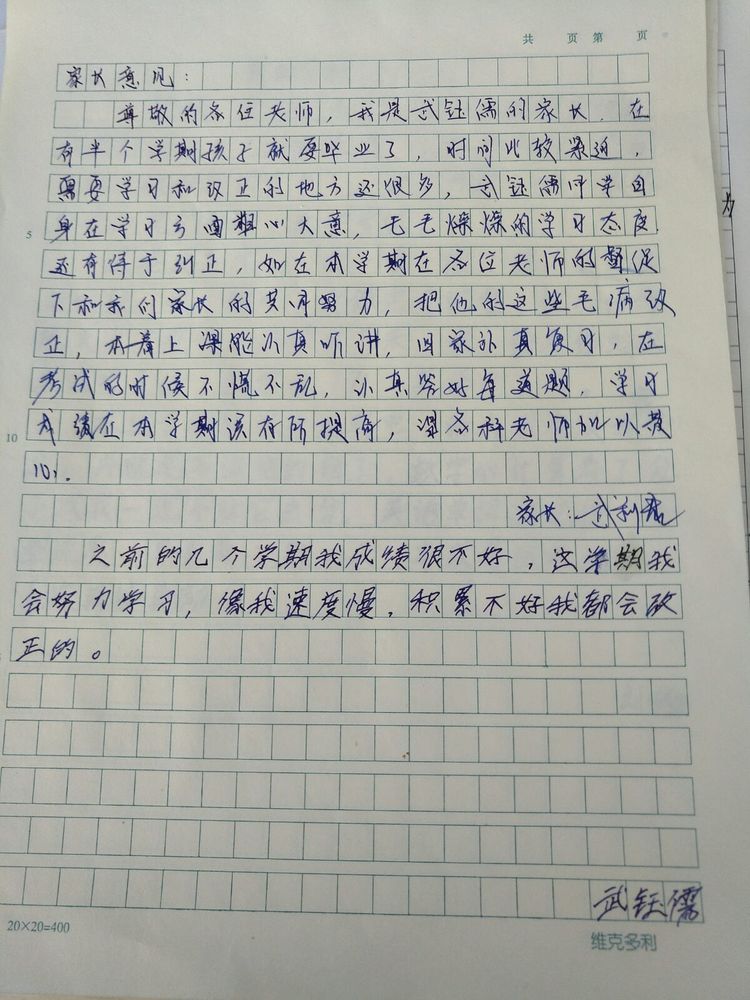 共 页 第 页
家长意见:
尊敬的各位老师,我是武钰儒的家长.在
有半个学期孩子就要毕业了,时间比较紧迫,
需要学习和改正的地方还很多,武钰儒同学自
身在学习方面粗心大意,毛毛燥燥的学习态度.
还有待于纠正,如在本学期在各位老师的督促
下和我们家长的共同努力,把他的这些毛病改
正,本着上课能认真听讲,回家认真复习,在
考试的时候不慌不乱,认真答好每道题.学习
成绩在本学期该有所提高,望各科老师加以费
心.
家长:武利君
之前的几个学期我成绩很不好,这学期我
会努力学习,像我速度慢,积累不好我都会改
正的。
武钰儒
5
10
20×20=400
维克多利